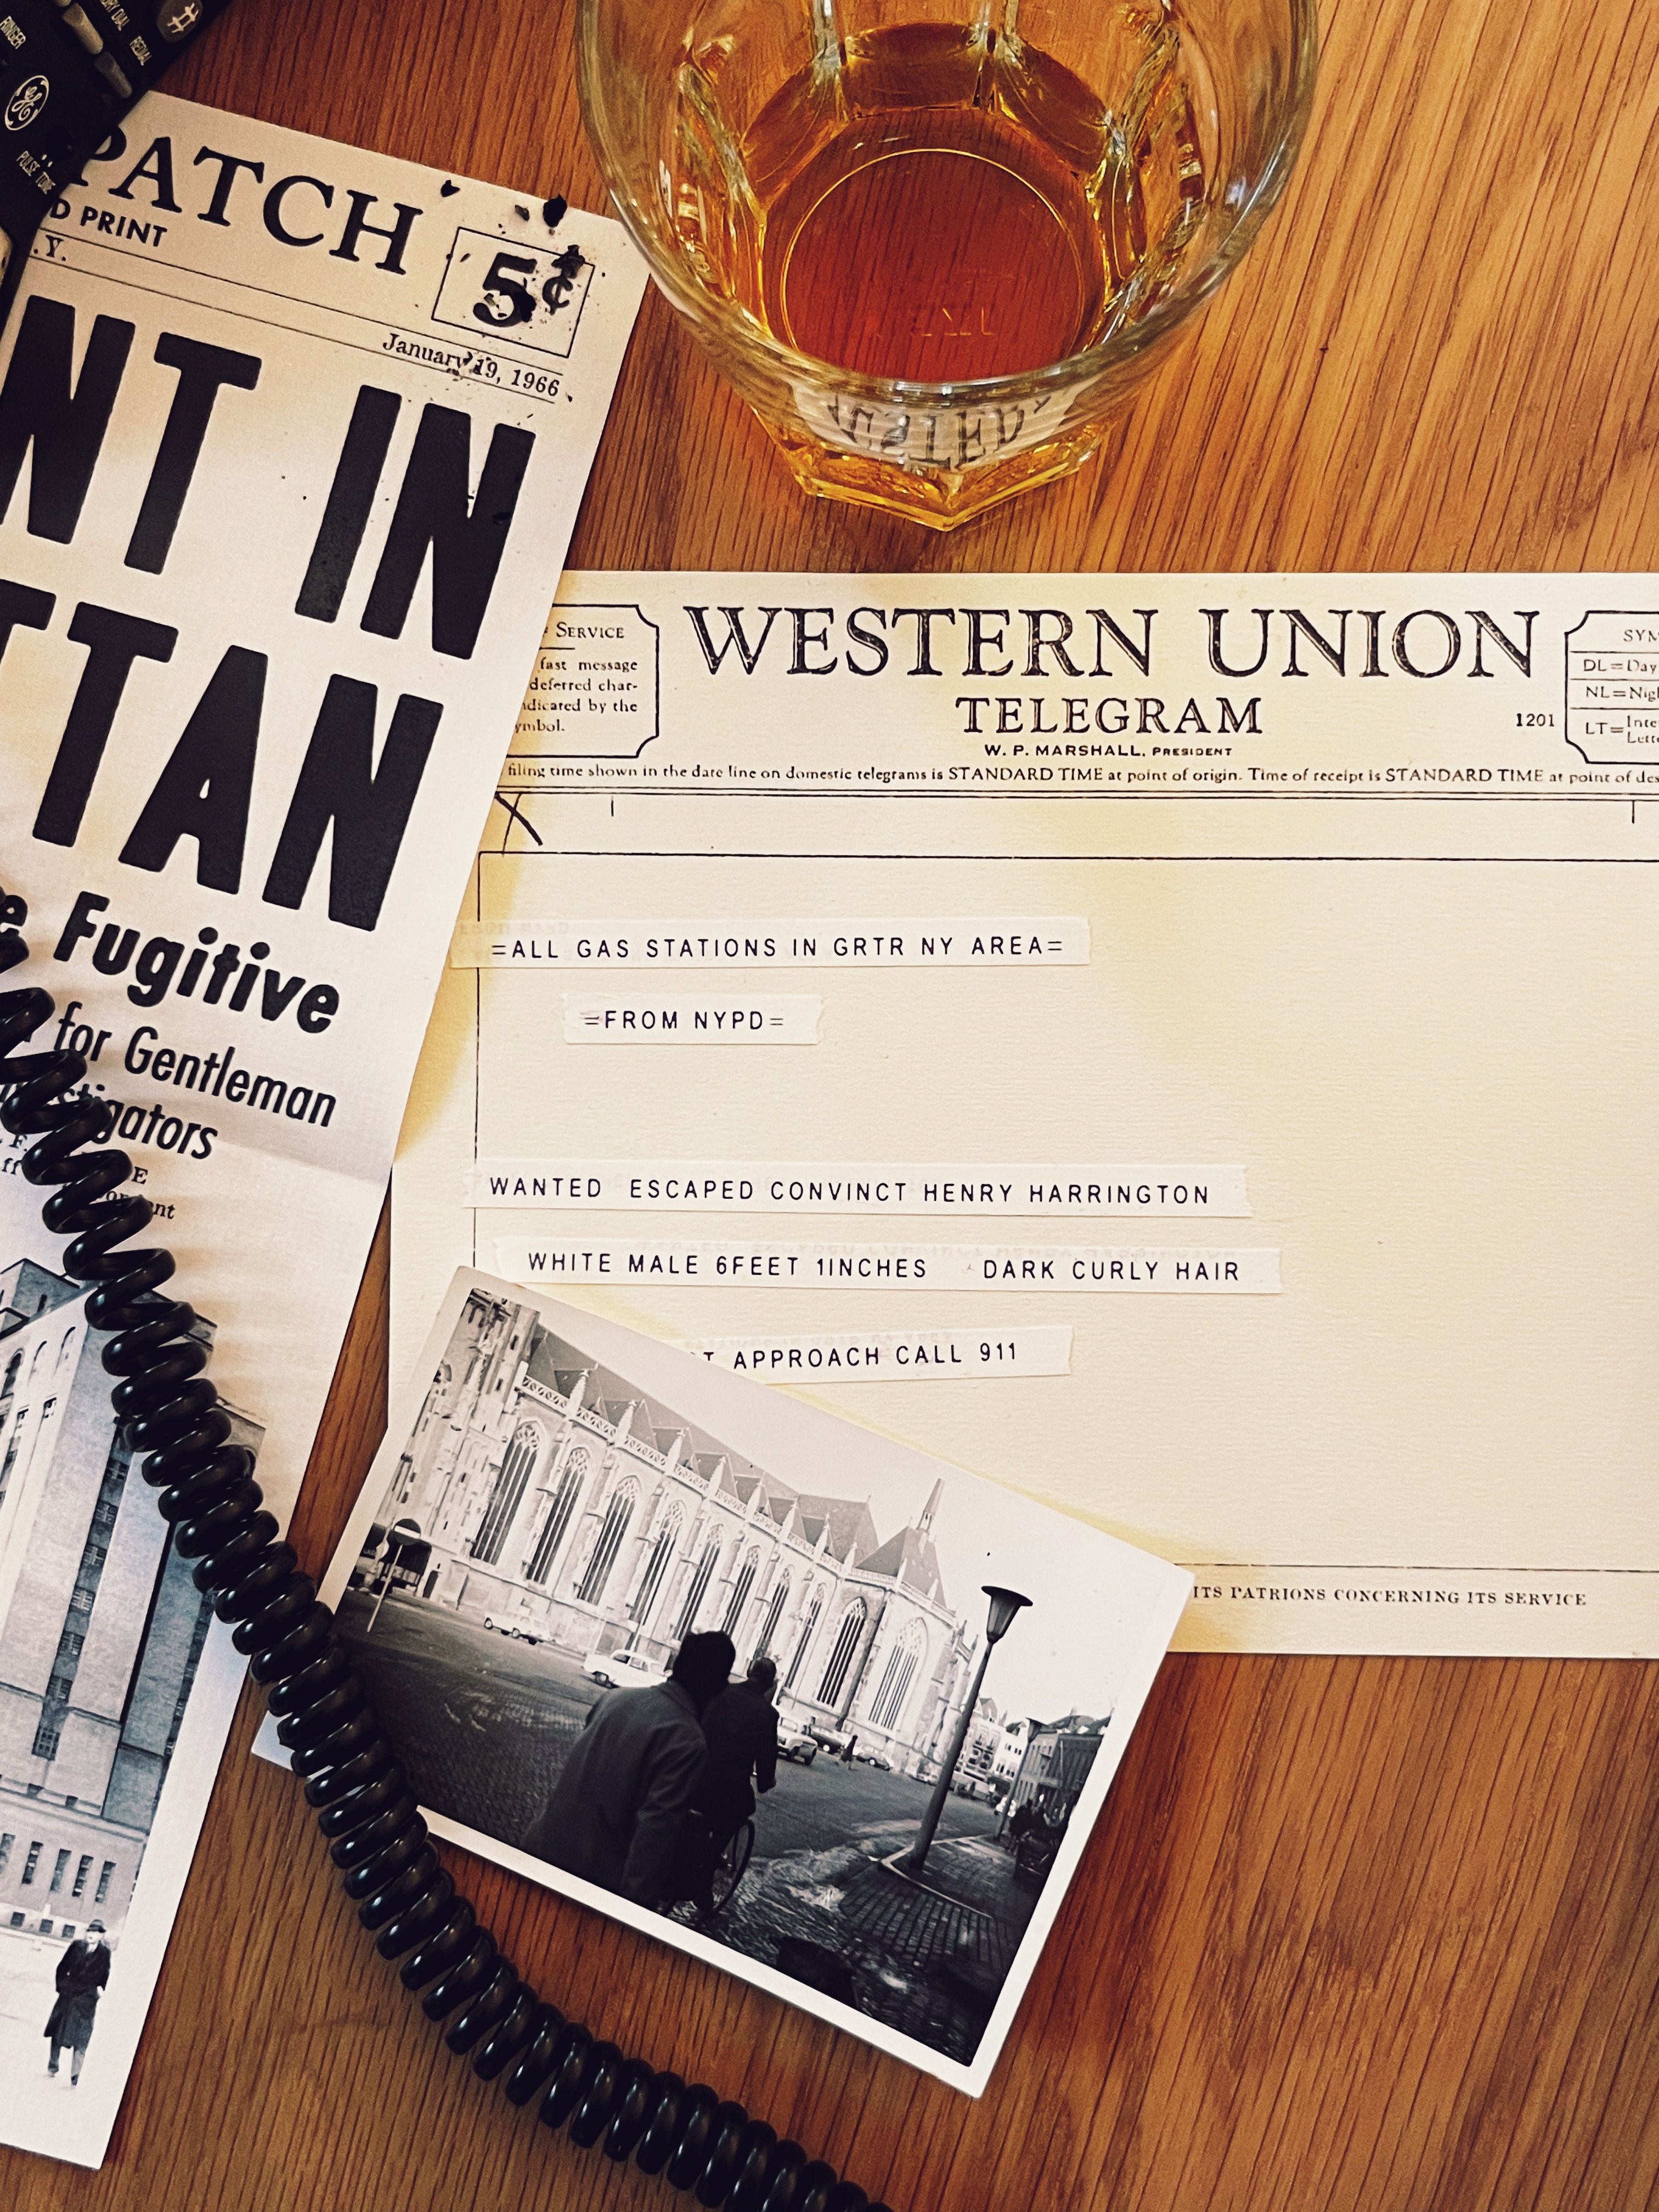 RINGER
REDIAL
#
GE
PULSE TONE
PATCH
D PRINT
.Y.
5¢
January 19, 1966
NT IN
TTAN
e Fugitive
for Gentleman
stigators
E
SERVICE
fast message
deferred char-
dicated by the
ymbol.
WESTERN UNION
TELEGRAM
W. P. MARSHALL, PRESIDENT
1201
SYM
DL=Day
NL=Nig
LT=Inte
Lette
filing time shown in the date line on domestic telegrams is STANDARD TIME at point of origin. Time of receipt is STANDARD TIME at point of des
=ALL GAS STATIONS IN GRTR NY AREA=
=FROM NYPD=
WANTED ESCAPED CONVINCT HENRY HARRINGTON
WHITE MALE 6FEET 1INCHES DARK CURLY HAIR
T APPROACH CALL 911
ITS PATRIONS CONCERNING ITS SERVICE